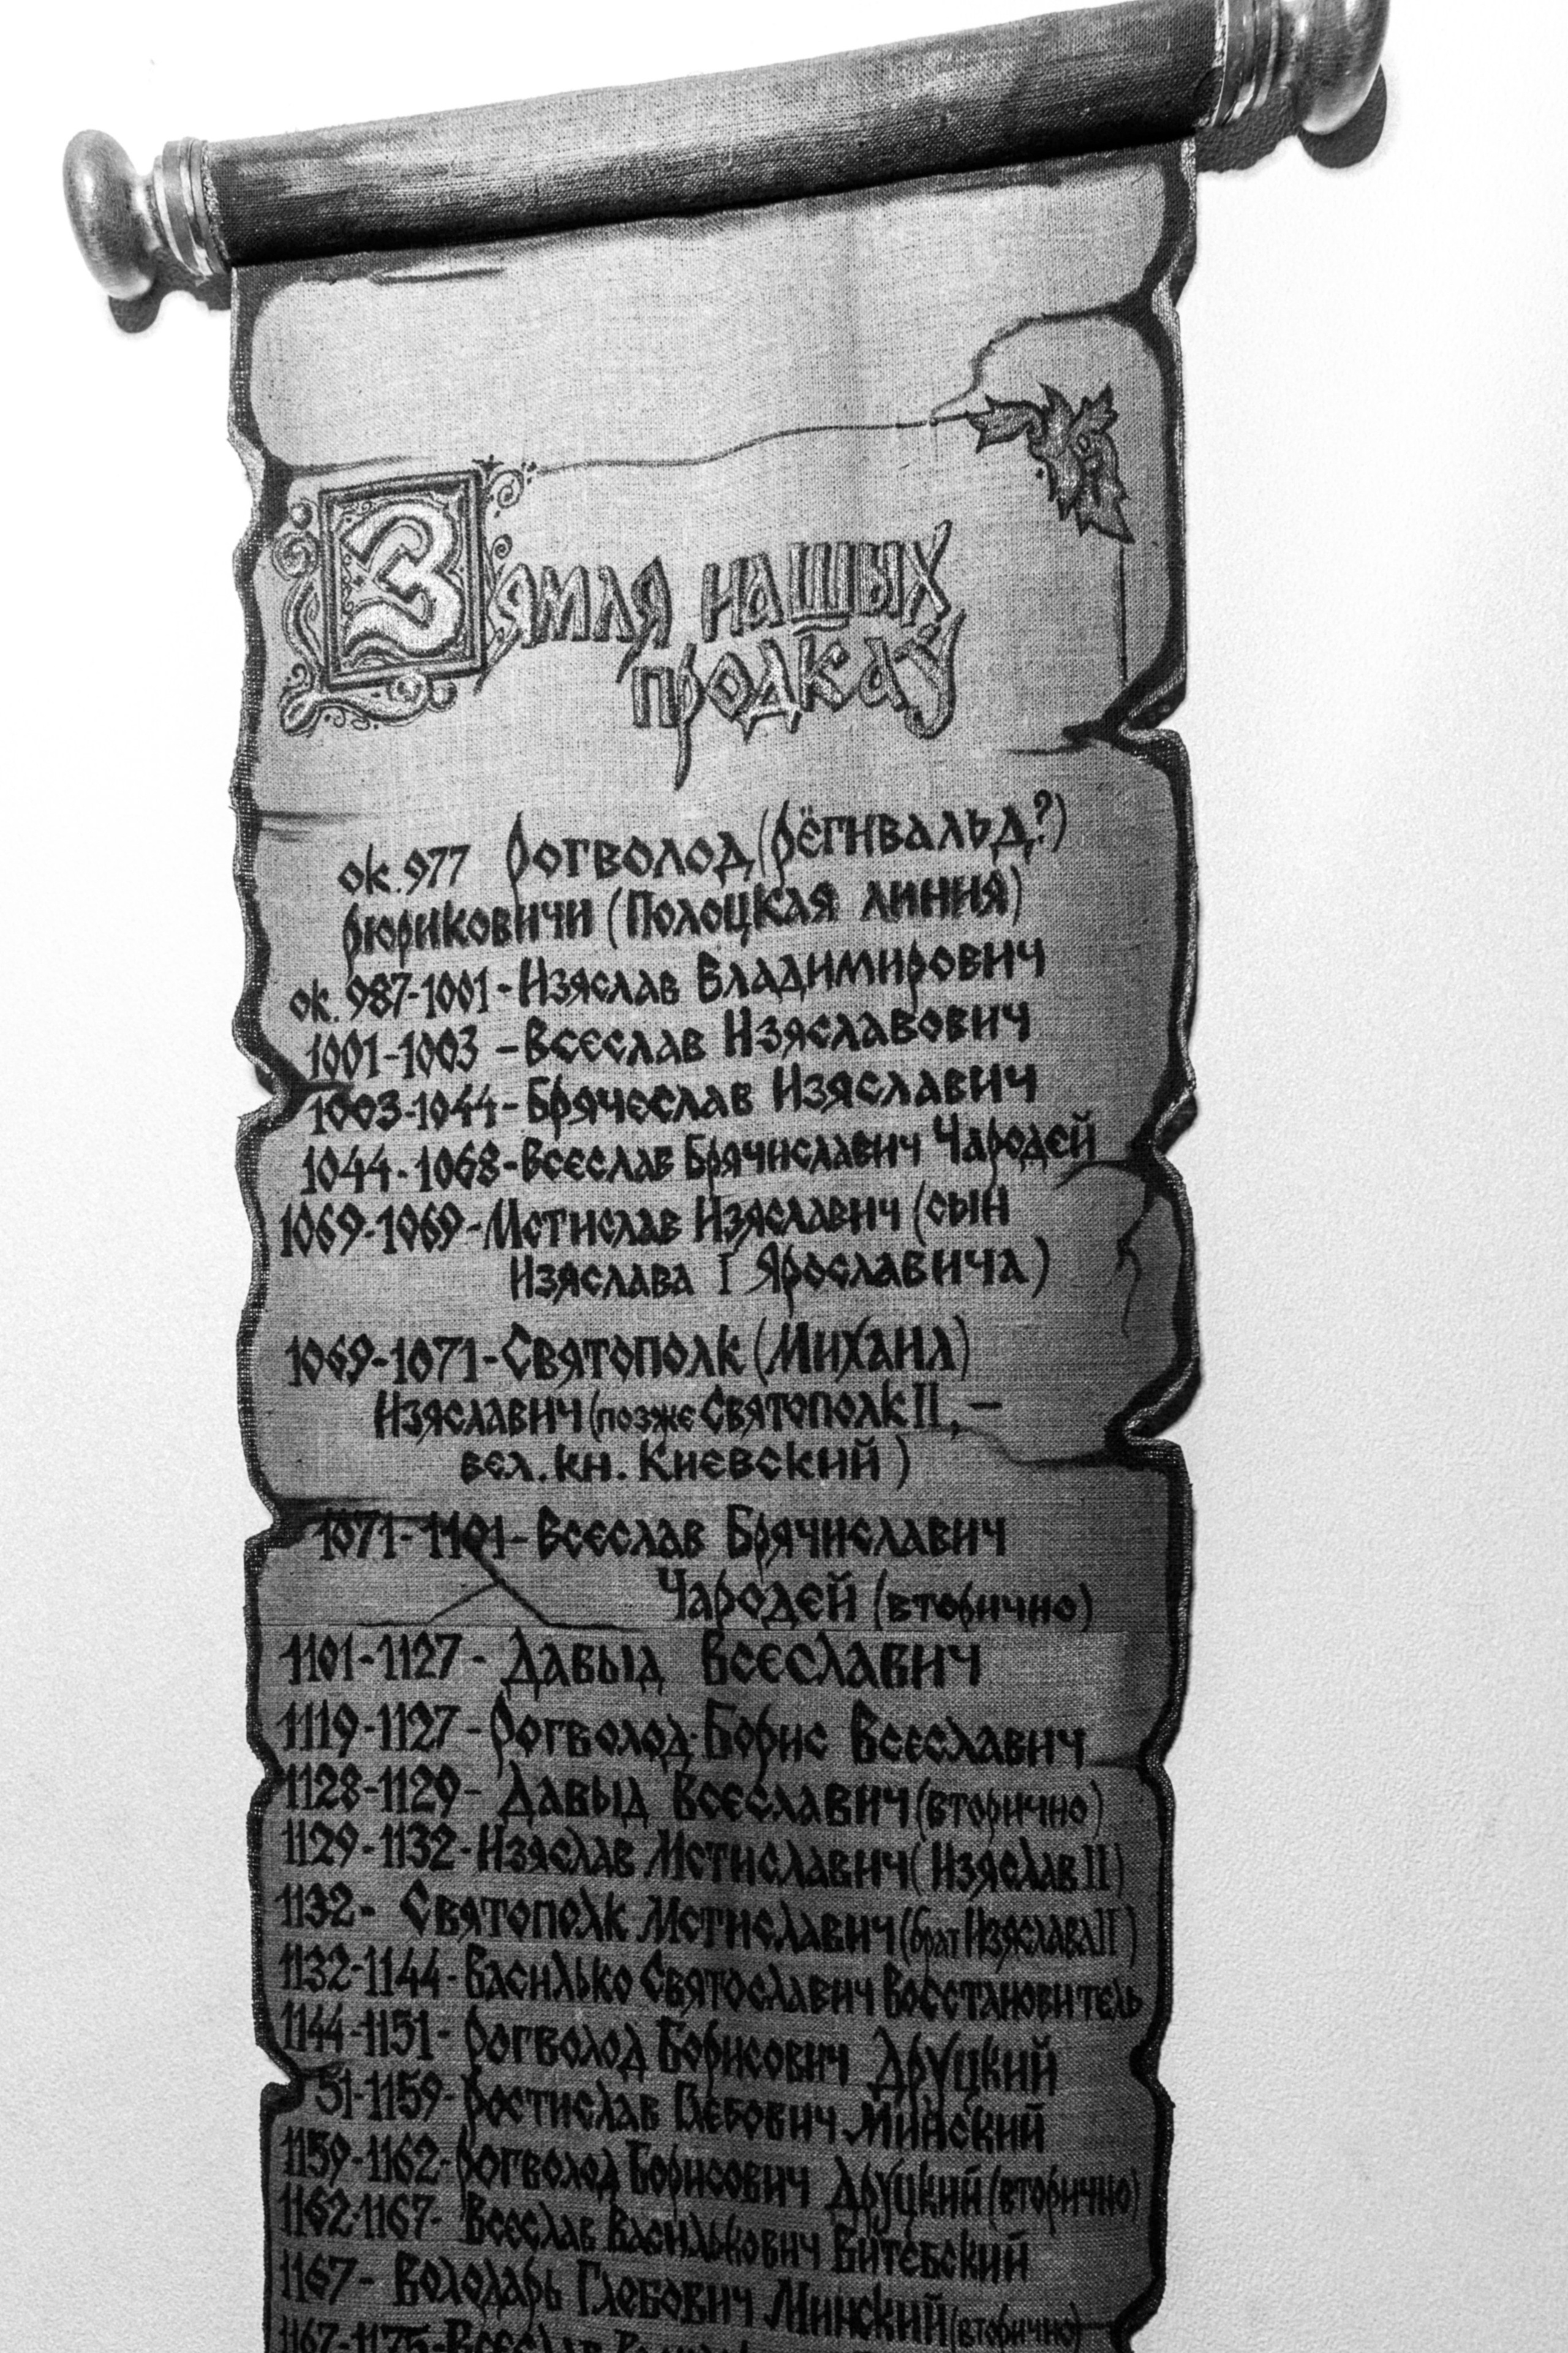 Зямля нашых
продкаў
ок. 977 Рогволод (Рёгнвальд?)
Рюриковичи (Полоцкая линия)
ок. 987-1001 - Изяслав Владимирович
1001-1003 - Всеслав Изяславович
1003-1044 - Брячеслав Изяславич
1044-1068 - Всеслав Брячиславич Чародей
1069-1069 - Мстислав Изяславич (сын
Изяслава I Ярославича)
1069-1071 - Святополк (Михаил)
Изяславич (позже Святополк II, -
вел. кн. Киевский)
1071-1101 - Всеслав Брячиславич
Чародей (вторично)
1101-1127 - Давыд Всеславич
1119-1127 - Рогволод-Борис Всеславич
1128-1129 - Давыд Всеславич (вторично)
1129-1132 - Изяслав Мстиславич (Изяслав II)
1132 - Святополк Мстиславич (брат Изяслава II)
1132-1144 - Василько Святославич Восстановитель
1144-1151 - Рогволод Борисович Друцкий
51-1159 - Ростислав Глебович Минский
1159-1162 - Рогволод Борисович Друцкий (вторично)
1162-1167 - Всеслав Василькович Витебский
1167 - Володарь Глебович Минский (вторично)
1167-1175 - Всеслав